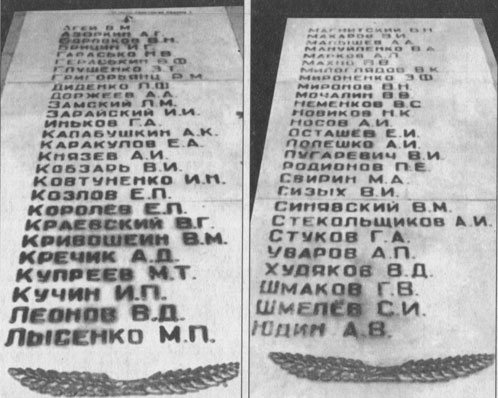 АГЕЙ В.М.
АЗОРКИН А.Г.
БОРОВКОВ В.Н.
БРИЦИН И.Г.
ГАРАСЬКО Н.В.
ГЕРАСЬКИН В.Ф.
ГЛУЩЕНКО З.Т.
ГРИГОРЬЯНЦ Р.М.
ДИДЕНКО П.Ф.
ДОРЖЕЕВ А.А.
ЗАМСКИЙ Л.М.
ЗАРАЙСКИЙ И.И.
ИНЬКОВ Г.А.
КАЛАБУШКИН А.К.
КАРАКУЛОВ Е.А.
КНЯЗЕВ А.И.
КОБЗАРЬ В.И.
КОВТУНЕНКО И.Н.
КОЗЛОВ Е.П.
КОРОЛЁВ Е.П.
КРАЕВСКИЙ В.Г.
КРИВОШЕИН В.М.
КРЕЧИК А.Д.
КУПРЕЕВ М.Т.
КУЧИН И.П.
ЛЕОНОВ В.Д.
ЛЫСЕНКО М.П.
МАГНИТСКИЙ Б.Н.
МАКАРОВ В.И.
МАЛЫШЕВ А.А.
МАНУЙЛЕНКО В.А.
МАРКОВ А.П.
МАХНО Л.В.
МИЛОГЛЯДОВ В.К.
МИРОНЕНКО З.Ф.
МИРОНОВ В.Н.
МОЧАЛИН В.В.
НЕМЕНКОВ В.С.
НОВИКОВ Н.К.
НОСОВ А.И.
ОСТАШЁВ Е.И.
ПОЛЕШКО А.И.
ПУГАРЕВИЧ В.И.
РОДИОНОВ П.Е.
СВИРИН М.А.
СИЗЫХ В.И.
СИНЯВСКИЙ В.М.
СТЕКОЛЬЩИКОВ А.И.
СТУКОВ Г.А.
УВАРОВ А.П.
ХУДЯКОВ В.Д.
ШМАКОВ Г.В.
ШМЕЛЁВ С.И.
ЮДИН А.В.